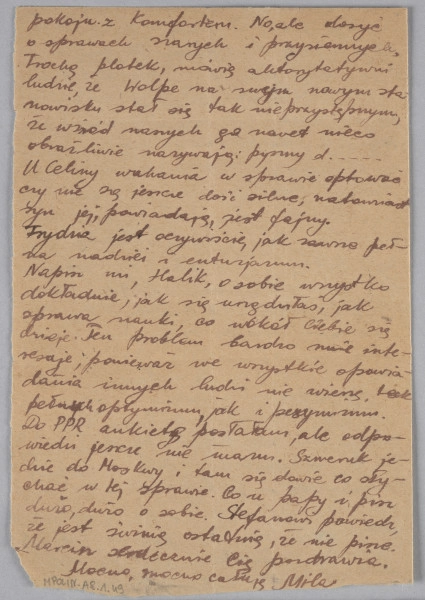 pokoju z Komfortem. No, ale dosyć
o sprawach szarych i przyziemnych,
Trochę plotek, mówią autorytatywni
ludzie, że Wolpe na swojm nowym sta-
nowisku stał się tak nieprzystępnym,
że wśród naszych go nawet nieco
obraźliwie nazywają: pyszny d.....
U Celiny wahania w sprawie optować
czy nie są jeszcze dość silne, natomiast
syn jej, powiadają, jest fajny.
Frydzia jest oczywiście, jak zawsze peł-
na nadziei i entuzjazmu.
Napisz mi, Halik, o sobie wszystko
dokładnie, jak się urządziłaś, jak
sprawa nauki, co wokół Ciebie się
dzieje. Ten problem bardzo mnie inte-
resuje, ponieważ we wszystkie opowia-
dania innych ludzi nie wierzę, tak
pełnych optymizmu, jak i pesymizmu.
Do PPR ankietę posłałam, ale odpo-
wiedzi jeszcze nie mam. Szmeruk je-
dzie do Moskwy i tam się dowie co sły-
chać w tej sprawie. Co u papy i pisz
dużo, dużo o sobie. Stefanowi powiedz,
że jest świnią ostatnią, że nie pisze.
Marcin serdecznie Cię pozdrawia.
Mocno, mocno całuję Mila
MPOLIN-A8.1.49